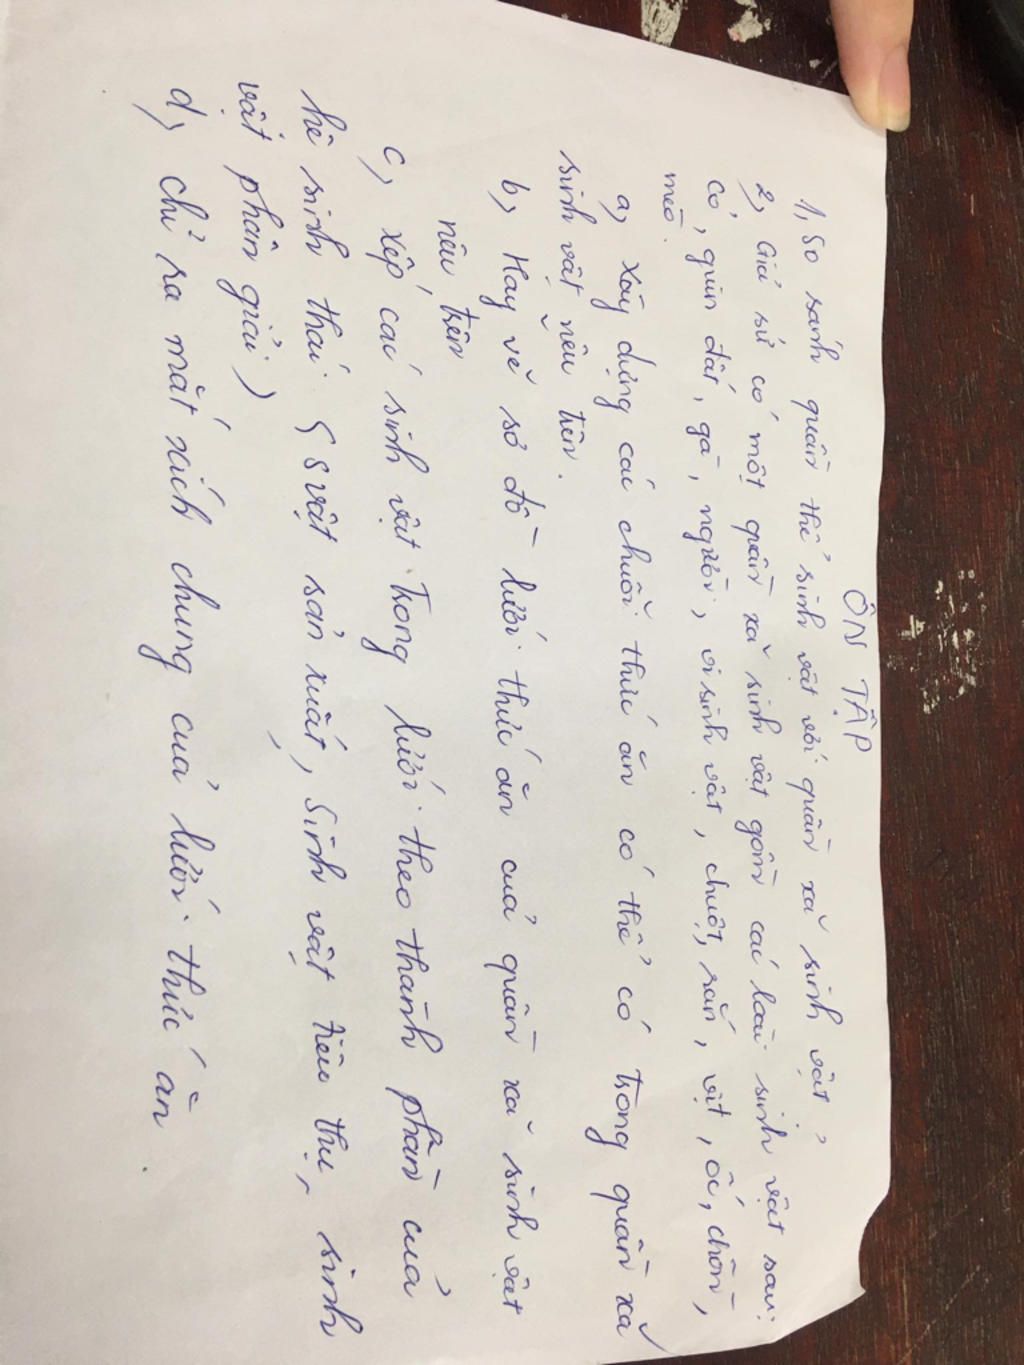 ÔN TẬP
1, So sánh quần thể sinh vật với quần xã sinh vật?
2, Giả sử có một quần xã sinh vật gồm các loài sinh vật sau:
cỏ, giun đất, gà, người, vi sinh vật, chuột, rắn, vịt, ốc, chồn,
mèo.
a, Xây dựng các chuỗi thức ăn có thể có trong quần xã
sinh vật nêu trên.
b, Hãy vẽ sơ đồ lưới thức ăn của quần xã sinh vật
nêu trên
c, xếp các sinh vật trong lưới theo thành phần của
hệ sinh thái (svật sản xuất, sinh vật tiêu thụ, sinh
vật phân giải)
d, chỉ ra mắt xích chung của lưới thức ăn.